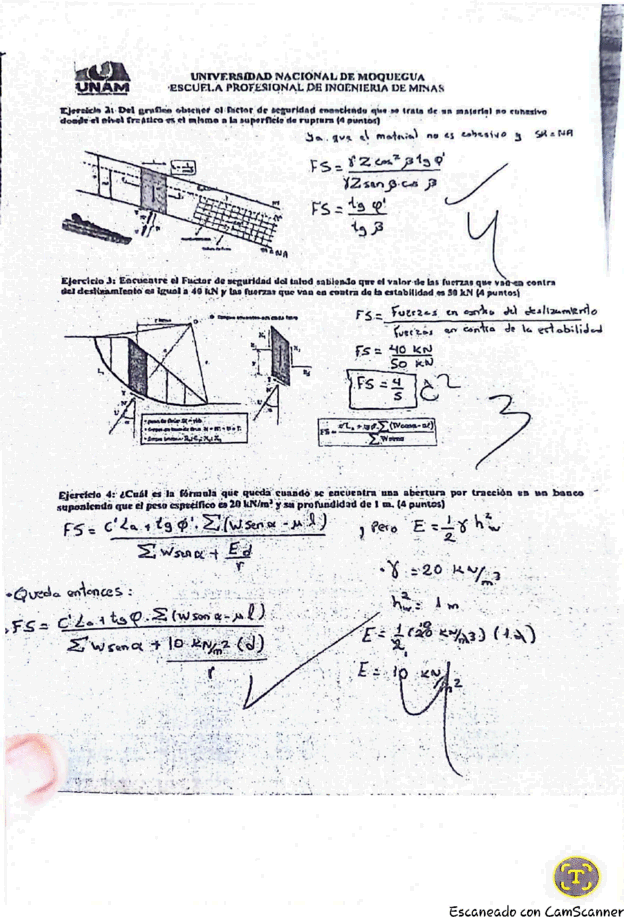 UNAM
UNIVERSIDAD NACIONAL DE MOQUEGUA
ESCUELA PROFESIONAL DE INGENIERIA DE MINAS
Ejercicio 2: Del grafico obtener el factor de seguridad conociendo que se trata de un material no cohesivo
donde el nivel freático es el mismo a la superficie de ruptura (4 puntos)
Ya que el material no es cohesivo y SR = NA
FS = γ Z cos² β tg φ'
γZ sen β cos β
FS = tg φ'
tg β
4
= NA
Ejercicio 3: Encuentre el Factor de seguridad del talud sabiendo que el valor de las fuerzas que van en contra
del deslizamiento es igual a 40 kN y las fuerzas que van en contra de la estabilidad es 50 kN (4 puntos)
FS = Fuerzas en contra del deslizamiento
Fuerzas en contra de la estabilidad
FS = 40 KN
50 KN
FS = 4
5
3
Ejercicio 4: ¿Cuál es la fórmula que queda cuando se encuentra una abertura por tracción en un banco
suponiendo que el peso específico es 20 kN/m³ y su profundidad de 1 m. (4 puntos)
FS = C'La + tg φ'. Σ (W sen α - μ l) , pero E = 1/2 γ h²w
Σ W sen α + Ed
r
• γ = 20 KN/m3
• Queda entonces:
h²w = 1 m
• FS = C'La + tg φ. Σ (W sen α - μ l)
Σ W sen α + 10 KN/m2 (d)
r
E = 1/2 (20 KN/m3) (1
E = 10 KN/m2
4
T
Escaneado con CamScanner